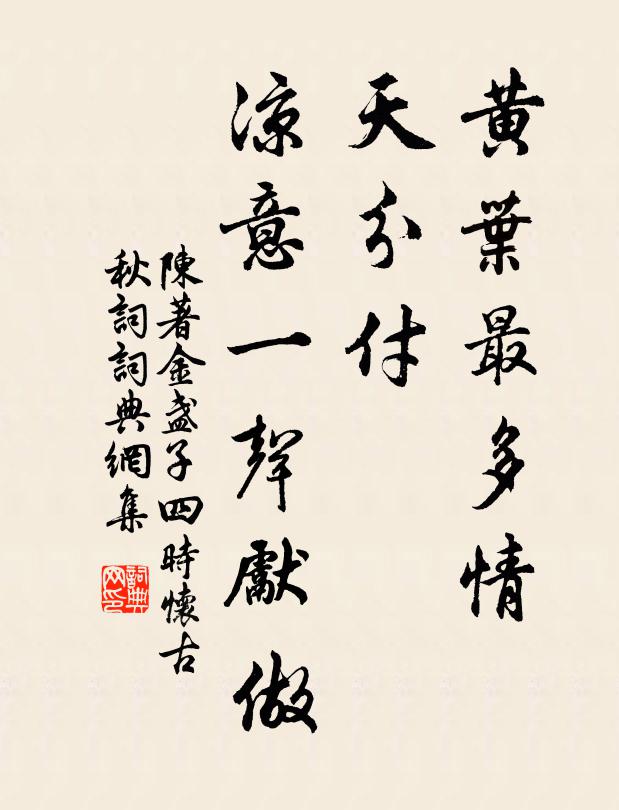 黃葉最多情
天分付
涼意一聲獻做
陳著金盞子四時懷古
秋詞詞典網集
詞典
网印